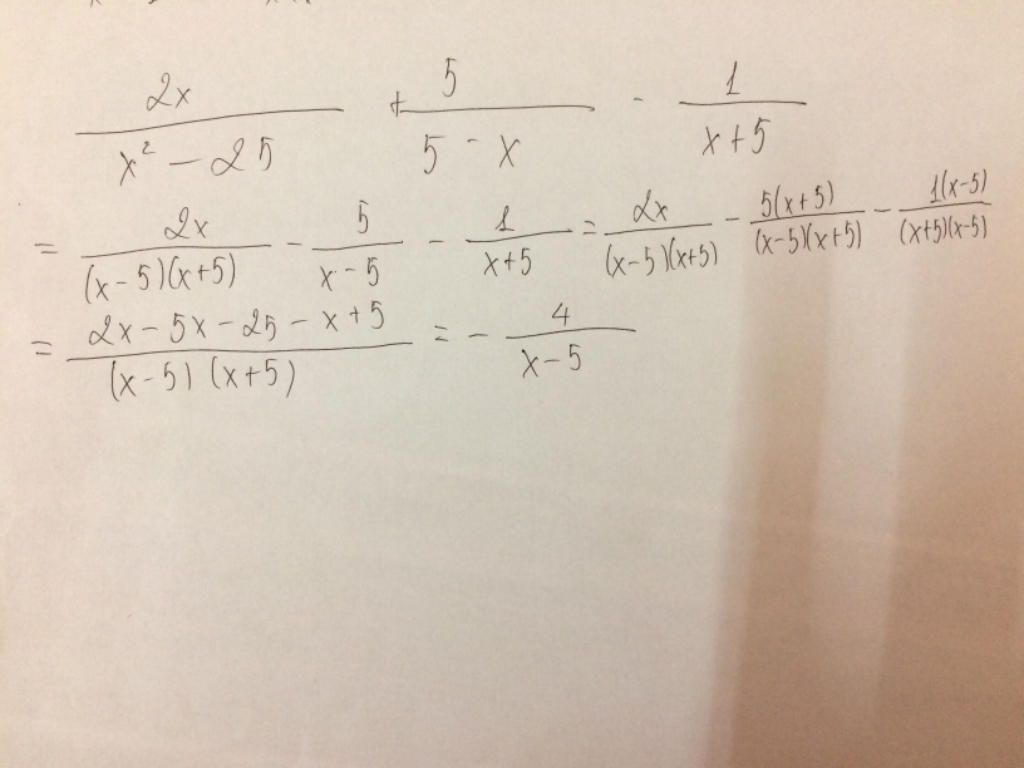 2x/(x² − 25) + 5/(5 − x) - 1/(x+5)
= 2x/((x−5)(x+5)) − 5/(x−5) − 1/(x+5) = 2x/((x−5)(x+5)) − 5(x+5)/((x−5)(x+5)) − 1(x−5)/((x+5)(x−5))
= (2x − 5x − 25 − x + 5)/((x−5)(x+5)) = − 4/(x−5)